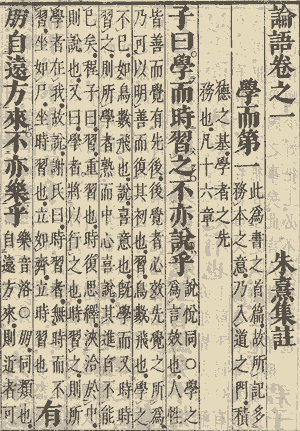 論語卷之一
朱熹集註
學而第一
此為書之首篇故所記多
務本之意乃入道之門積
德之基學者之先
務也凡十六章
子曰學而時習之不亦說乎
說悅同○學之
為言效也人性
皆善而覺有先後後覺者必效先覺之所為
乃可以明善而復其初也習鳥數飛也學之
不已如鳥數飛也說喜意也旣學而又時時
習之則所學者熟而中心喜說其進自不能
已矣程子曰習重習也時復思繹浹洽於中
則說也又曰學者將以行之也時習之則所
學者在我故說謝氏曰時習者無時而不
習坐如尸坐時習也立如齊立時習也
有
朋自遠方來不亦樂乎
樂音洛○朋同類也
自遠方來則近者可